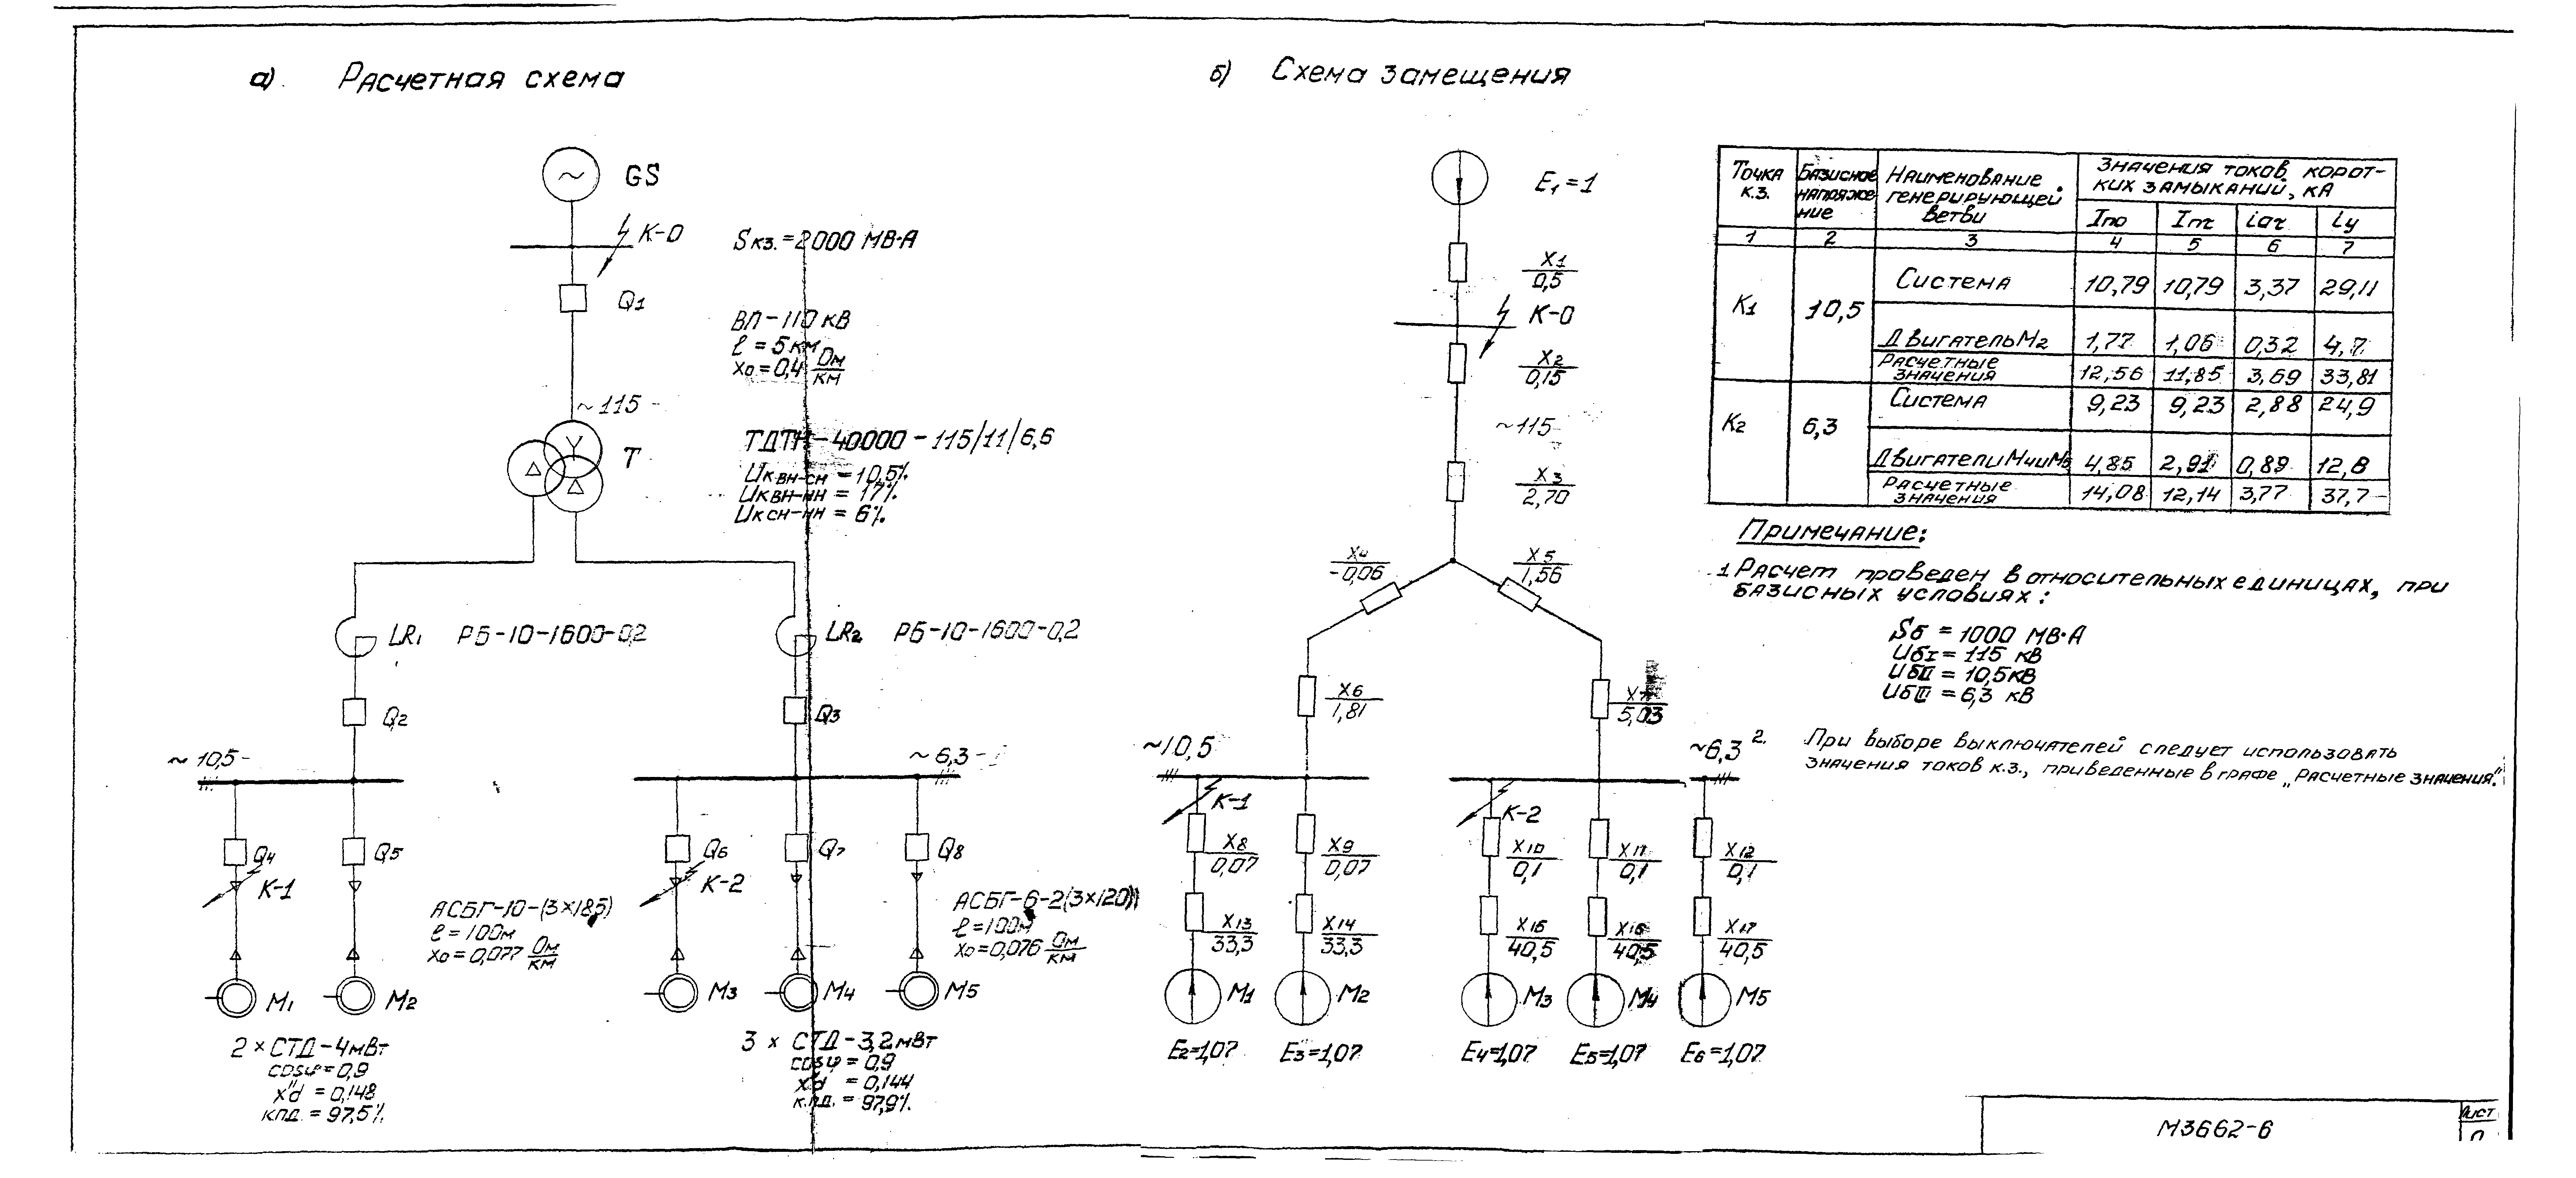 а). Расчетная схема
GS
К-0
Sкз. = 2000 МВ·А
Q1
ВЛ-110 кВ
ℓ = 5 км
x0 = 0,4 Ом/км
~115-
ТДТН-40000-115/11/6,6
Т
Uк ВН-СН = 10,5%
Uк ВН-НН = 17%
Uк СН-НН = 6%
LR1 РБ-10-1600-0,2
LR2 РБ-10-1600-0,2
Q2
Q3
~10,5-
~6,3-
Q4
Q5
Q6
Q7
Q8
К-1
К-2
АСБГ-10-(3×185)
ℓ = 100м
x0 = 0,077 Ом/км
АСБГ-6-2(3×120)
ℓ = 100м
x0 = 0,076 Ом/км
М1
М2
М3
М4
М5
2 × СТД-4мВт
cosφ = 0,9
x"d = 0,148
кпд. = 97,5%
3 × СТД-3,2мВт
cosφ = 0,9
x"d = 0,144
к.пд. = 97,9%
б) Схема замещения
E1 = 1
X1
0,5
К-0
X2
0,15
~115-
X3
2,70
X4
-0,06
X5
1,56
X6
1,81
X7
5,03
~10,5
~6,3
К-1
К-2
X8
0,07
X9
0,07
X10
0,1
X11
0,1
X12
0,1
X13
33,3
X14
33,3
X15
40,5
X16
40,5
X17
40,5
М1
М2
М3
М4
М5
E2=1,07
E3=1,07
E4=1,07
E5=1,07
E6=1,07
Точка к.з.
Базисное напряжение
Наименование генерирующей ветви
Значения токов коротких замыканий, кА
Iпо Iпτ iаτ iу
1 2 3 4 5 6 7
К1 10,5 Система 10,79 10,79 3,37 29,11
Двигатель М2 1,77 1,06 0,32 4,7
Расчетные значения 12,56 11,85 3,69 33,81
К2 6,3 Система 9,23 9,23 2,88 24,9
Двигатели М4 и М5 4,85 2,91 0,89 12,8
Расчетные значения 14,08 12,14 3,77 37,7
Примечание:
1 Расчет проведен в относительных единицах, при
базисных условиях:
Sб = 1000 МВ·А
UбI = 115 кВ
UбII = 10,5кВ
UбIII = 6,3 кВ
2. При выборе выключателей следует использовать
значения токов к.з., приведенные в графе „Расчетные значения".
М3662-6
Лист